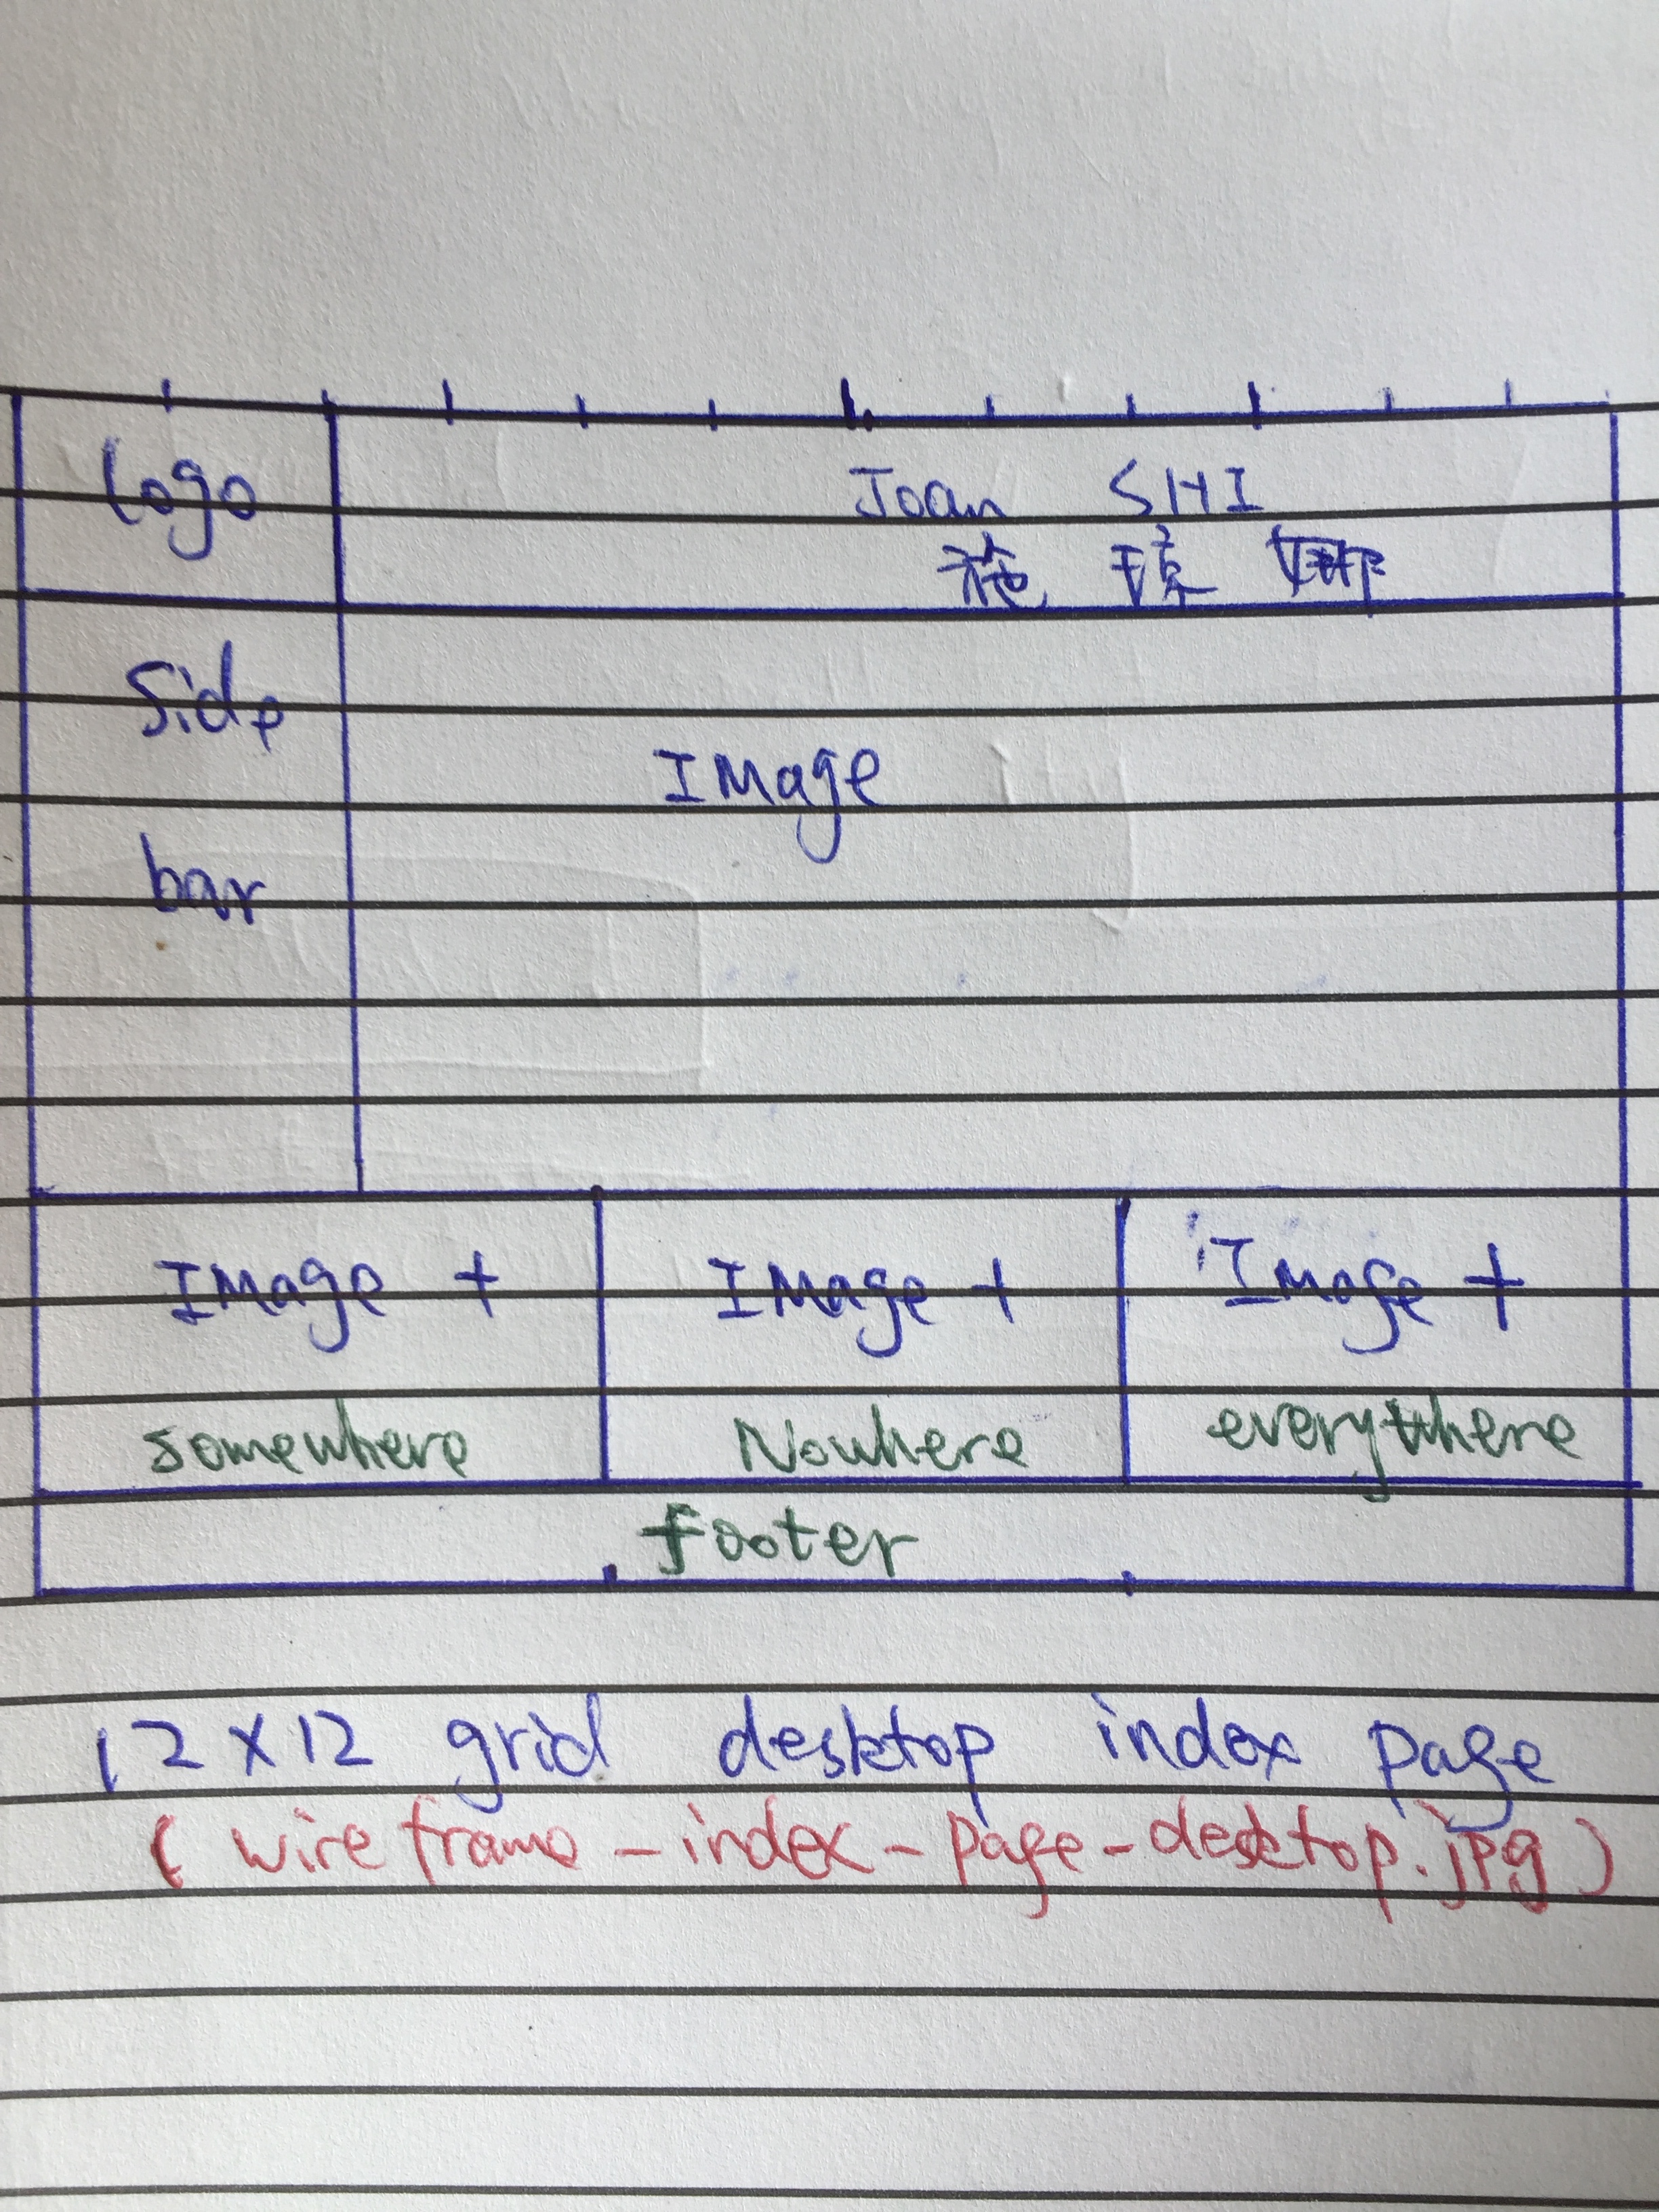 Logo
Joan SHI
施 琼 娜
Side
bar
Image
Image +
somewhere
Image +
Nowhere
Image +
everywhere
footer
12 x 12 grid desktop index page
( wireframe - index - page - desktop.jpg )